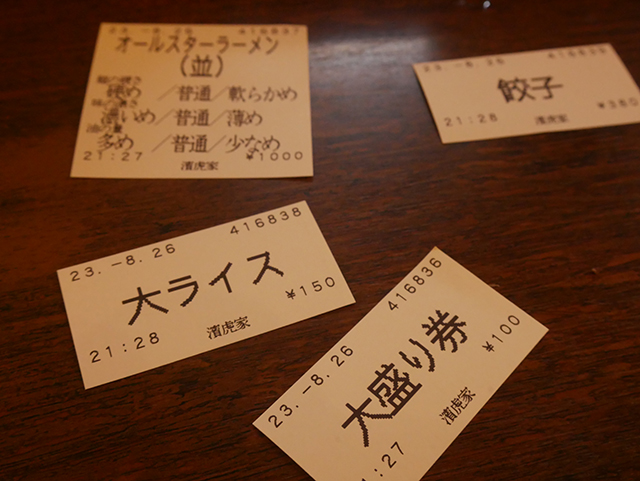 23.-8.26 416837
オールスターラーメン
(並)
麺の硬さ
硬め /普通/軟らかめ
味の濃さ
濃いめ/普通/薄め
油の量
多め /普通/少なめ
21:27 ¥1000
濱虎家
23.-8.26 416839
餃子
¥380
21:28 濱虎家
23.-8.26 416838
大ライス
¥150
21:28 濱虎家
23.-8.26 416836
大盛り券
¥100
:27 濱虎家